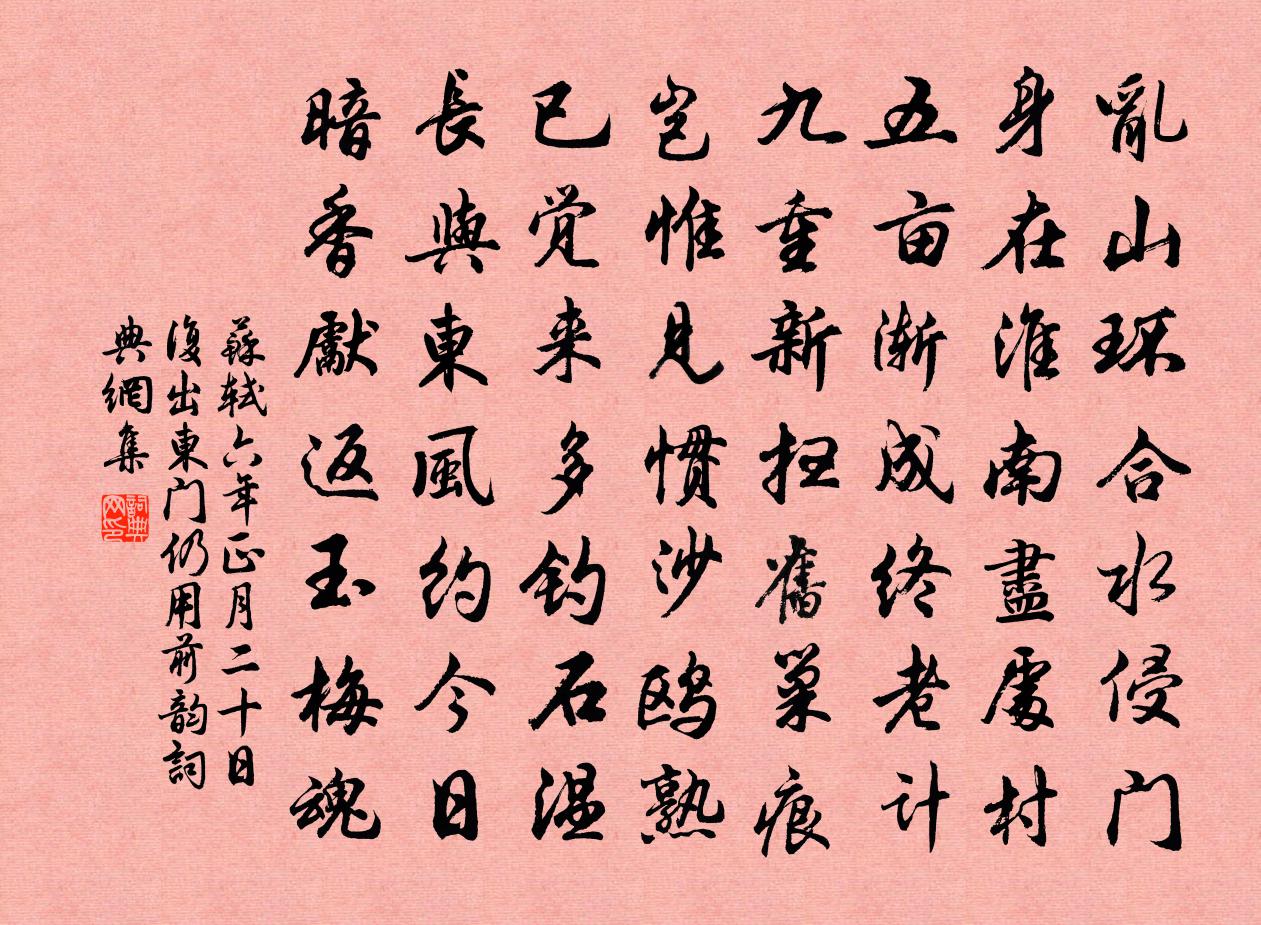 亂山环合水侵门
身在淮南盡處村
五亩渐成终老计
九重新扫舊巢痕
岂惟見惯沙鸥熟
已觉来多钓石温
長與東風约今日
暗香獻返玉梅魂
蘇轼六年正月二十日
復出東门仍用前韵詞
典網集
詞典
网印